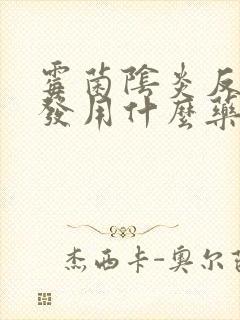 霉菌陰炎反
發用什麼藥
杰西卡-奧尔